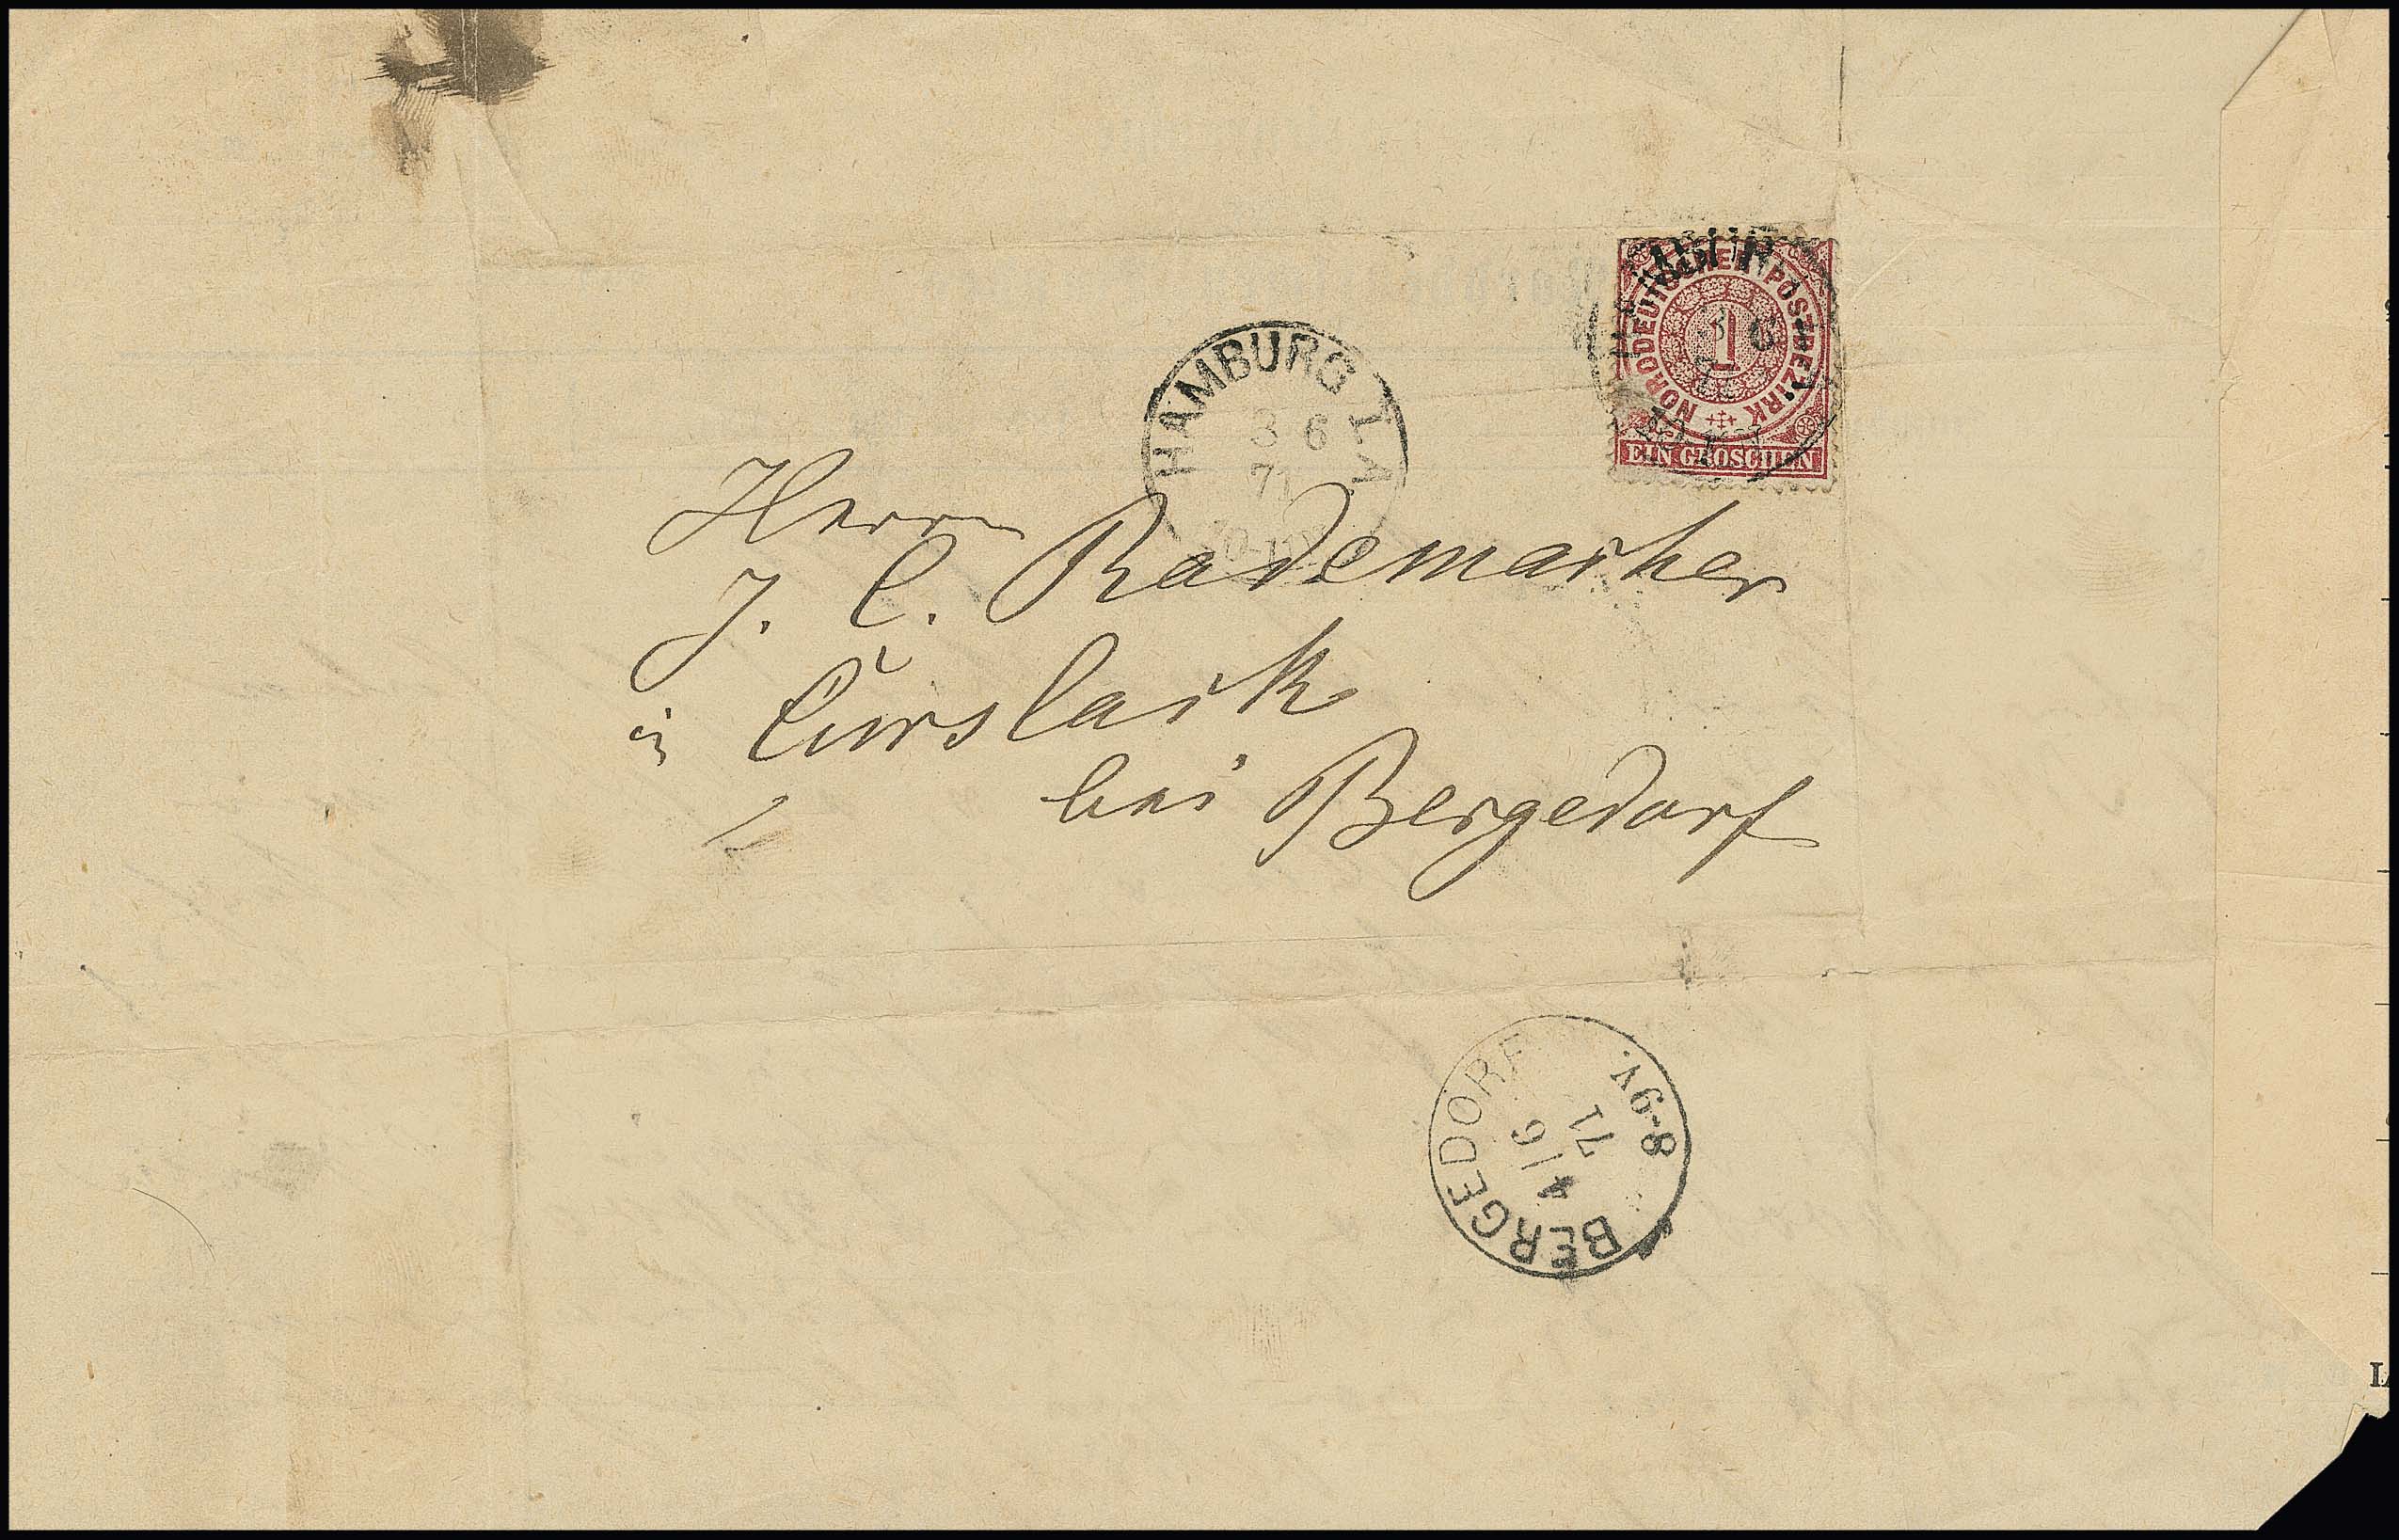 NORDDEUTSCHER POSTBEZIRK
1
EIN GROSCHEN
3 6
HAMBURG I. A
3 6
71
Herrn
J. C. Rademacher
in Curslack
bei Bergedorf
BERGEDORF
4/6
71
8-9V.